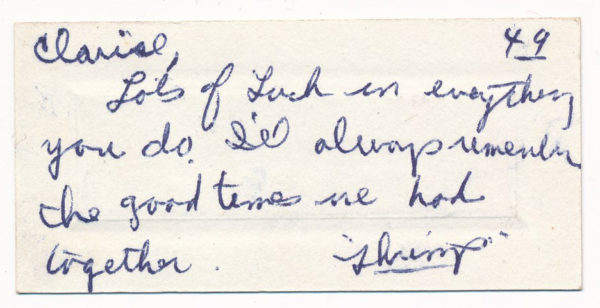 Clarise, 49
Lots of Luck in everything
you do. I'll always remember
the good times we had
together. "Shrimp"